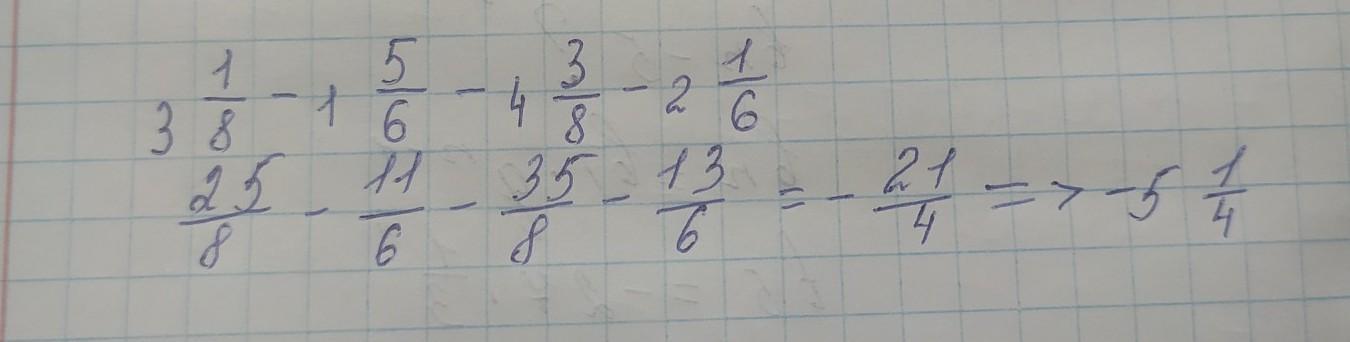 3 1/8 - 1 5/6 - 4 3/8 - 2 1/6
25/8 - 11/6 - 35/8 - 13/6 = - 21/4 => -5 1/4